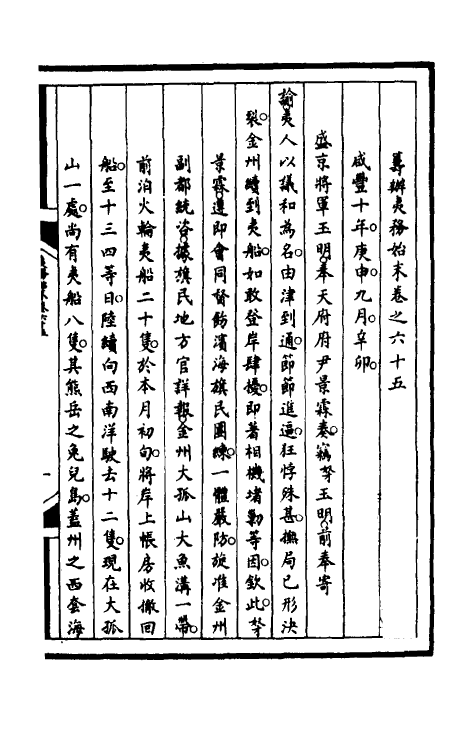 籌辦夷務始末卷之六十五
咸豐十年庚申九月辛卯
盛京將軍玉明奉天府府尹景霖奏竊孥玉明前奉寄
諭夷人以議和為名由津到通節節進逼狂悖殊甚撫局已形決
裂金州續到夷船如敢登岸肆擾即著相機堵勦等因欽此孥
景霖遵即會同督飭濱海旗民團練一體嚴防旋准金州
副都統咨據旗民地方官詳報金州大孤山大魚溝一帶
前泊火輪夷船二十隻於本月初旬將岸上帳房收撤回
船至十三四等日陸續向西南洋駛去十二隻現在大孤
山一處尚有夷船八隻其熊岳之兔兒島蓋州之西套海